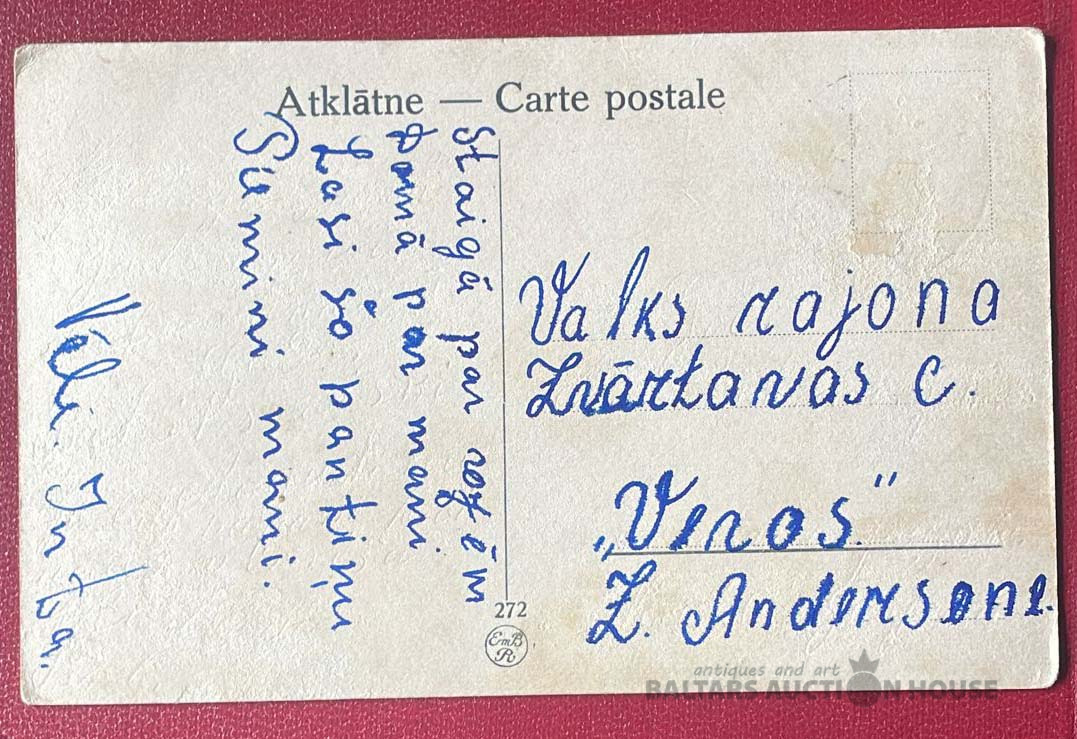 Atklātne — Carte postale
Staigā par rozēm
Domā par mani
Lasi šo pantiņu
Piemini mani.
Inta.
Valks rajona
Zvārtavas c.
„Veras“
Z. Andersone.
272
EmB
R
antiques and art
BALTARS AUCTION HOUSE